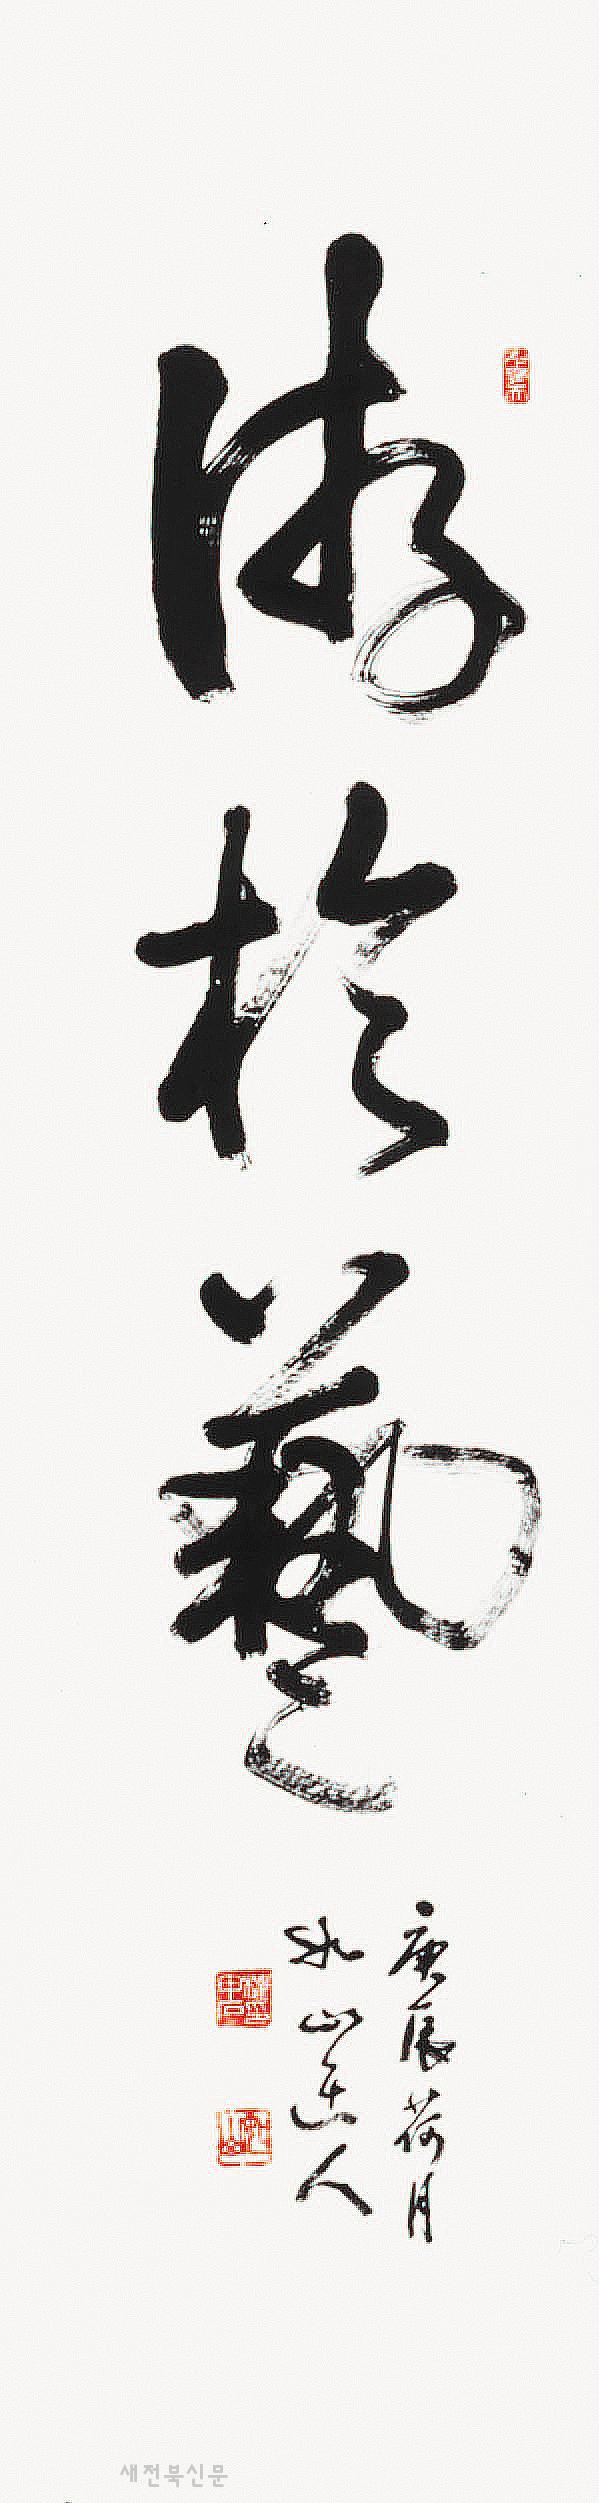 游於藝
庚辰荷月
山人
새전북신문